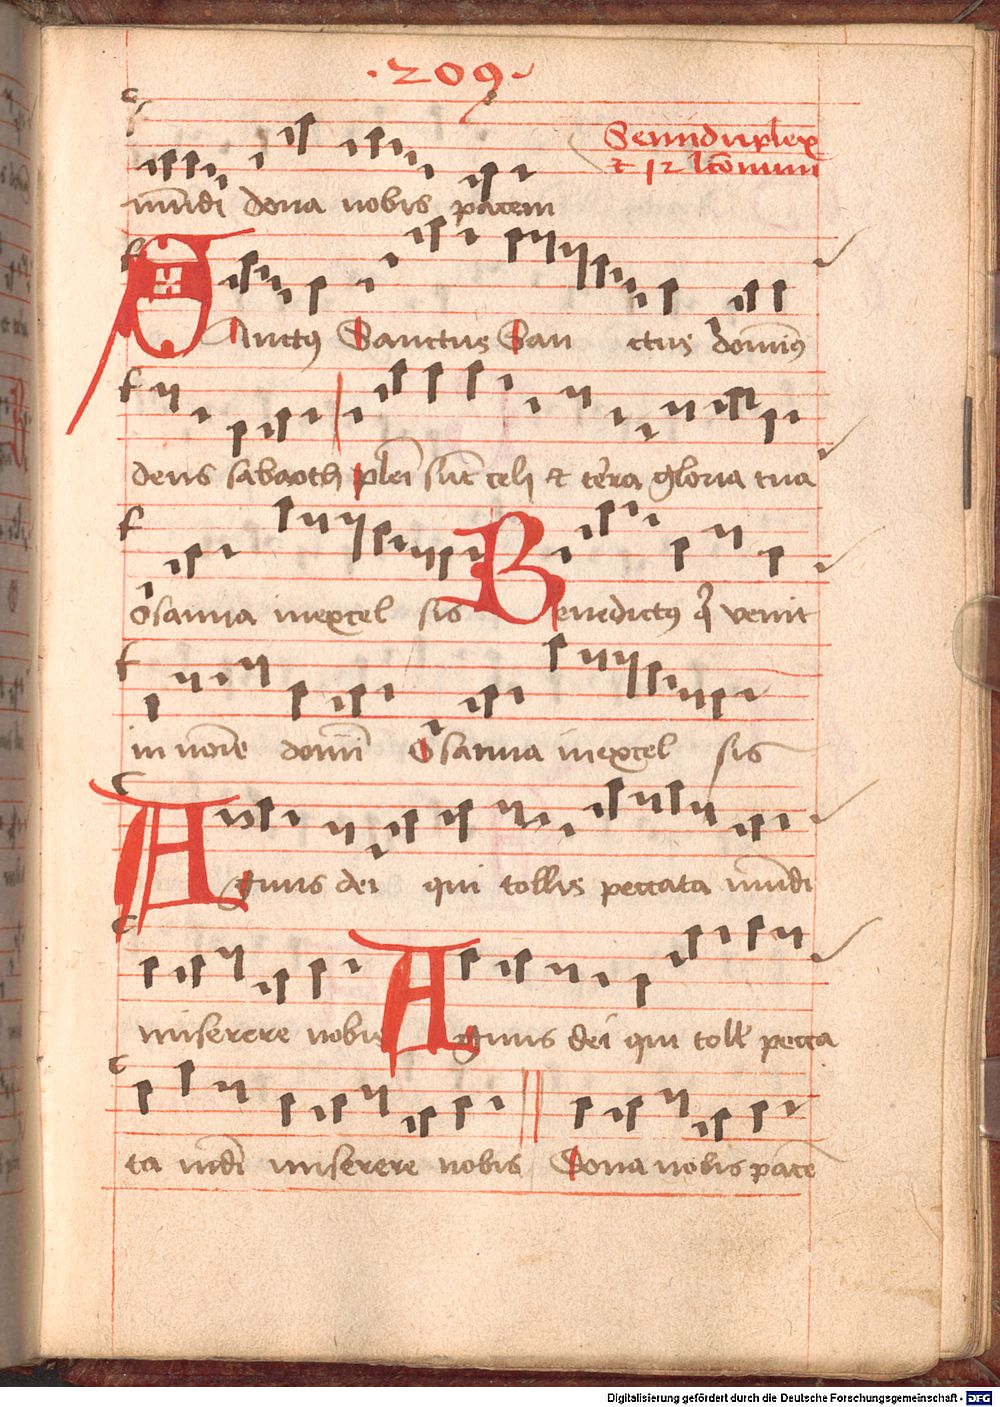 ·209·
Semiduplex
mūdi dona nobis pacem
Sanctꝰ Sanctus San ctus domīꝰ
deus sabaoth pleī sūt celi et terra gloria tua
Osanna in excel sis Benedictꝰ q̄ venit
in noīe domī Osanna in excel sis
Agnus dei qui tollis peccata mūdi
miserere nobis Agnus dei qui toll pecca
ta mūdi miserere nobis Dona nobis pacē
Digitalisierung gefördert durch die Deutsche Forschungsgemeinschaft - DFG